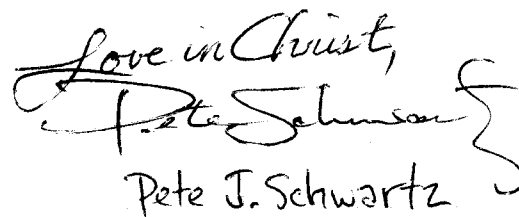 Love in Christ,
Pete Schwartz
Pete J. Schwartz